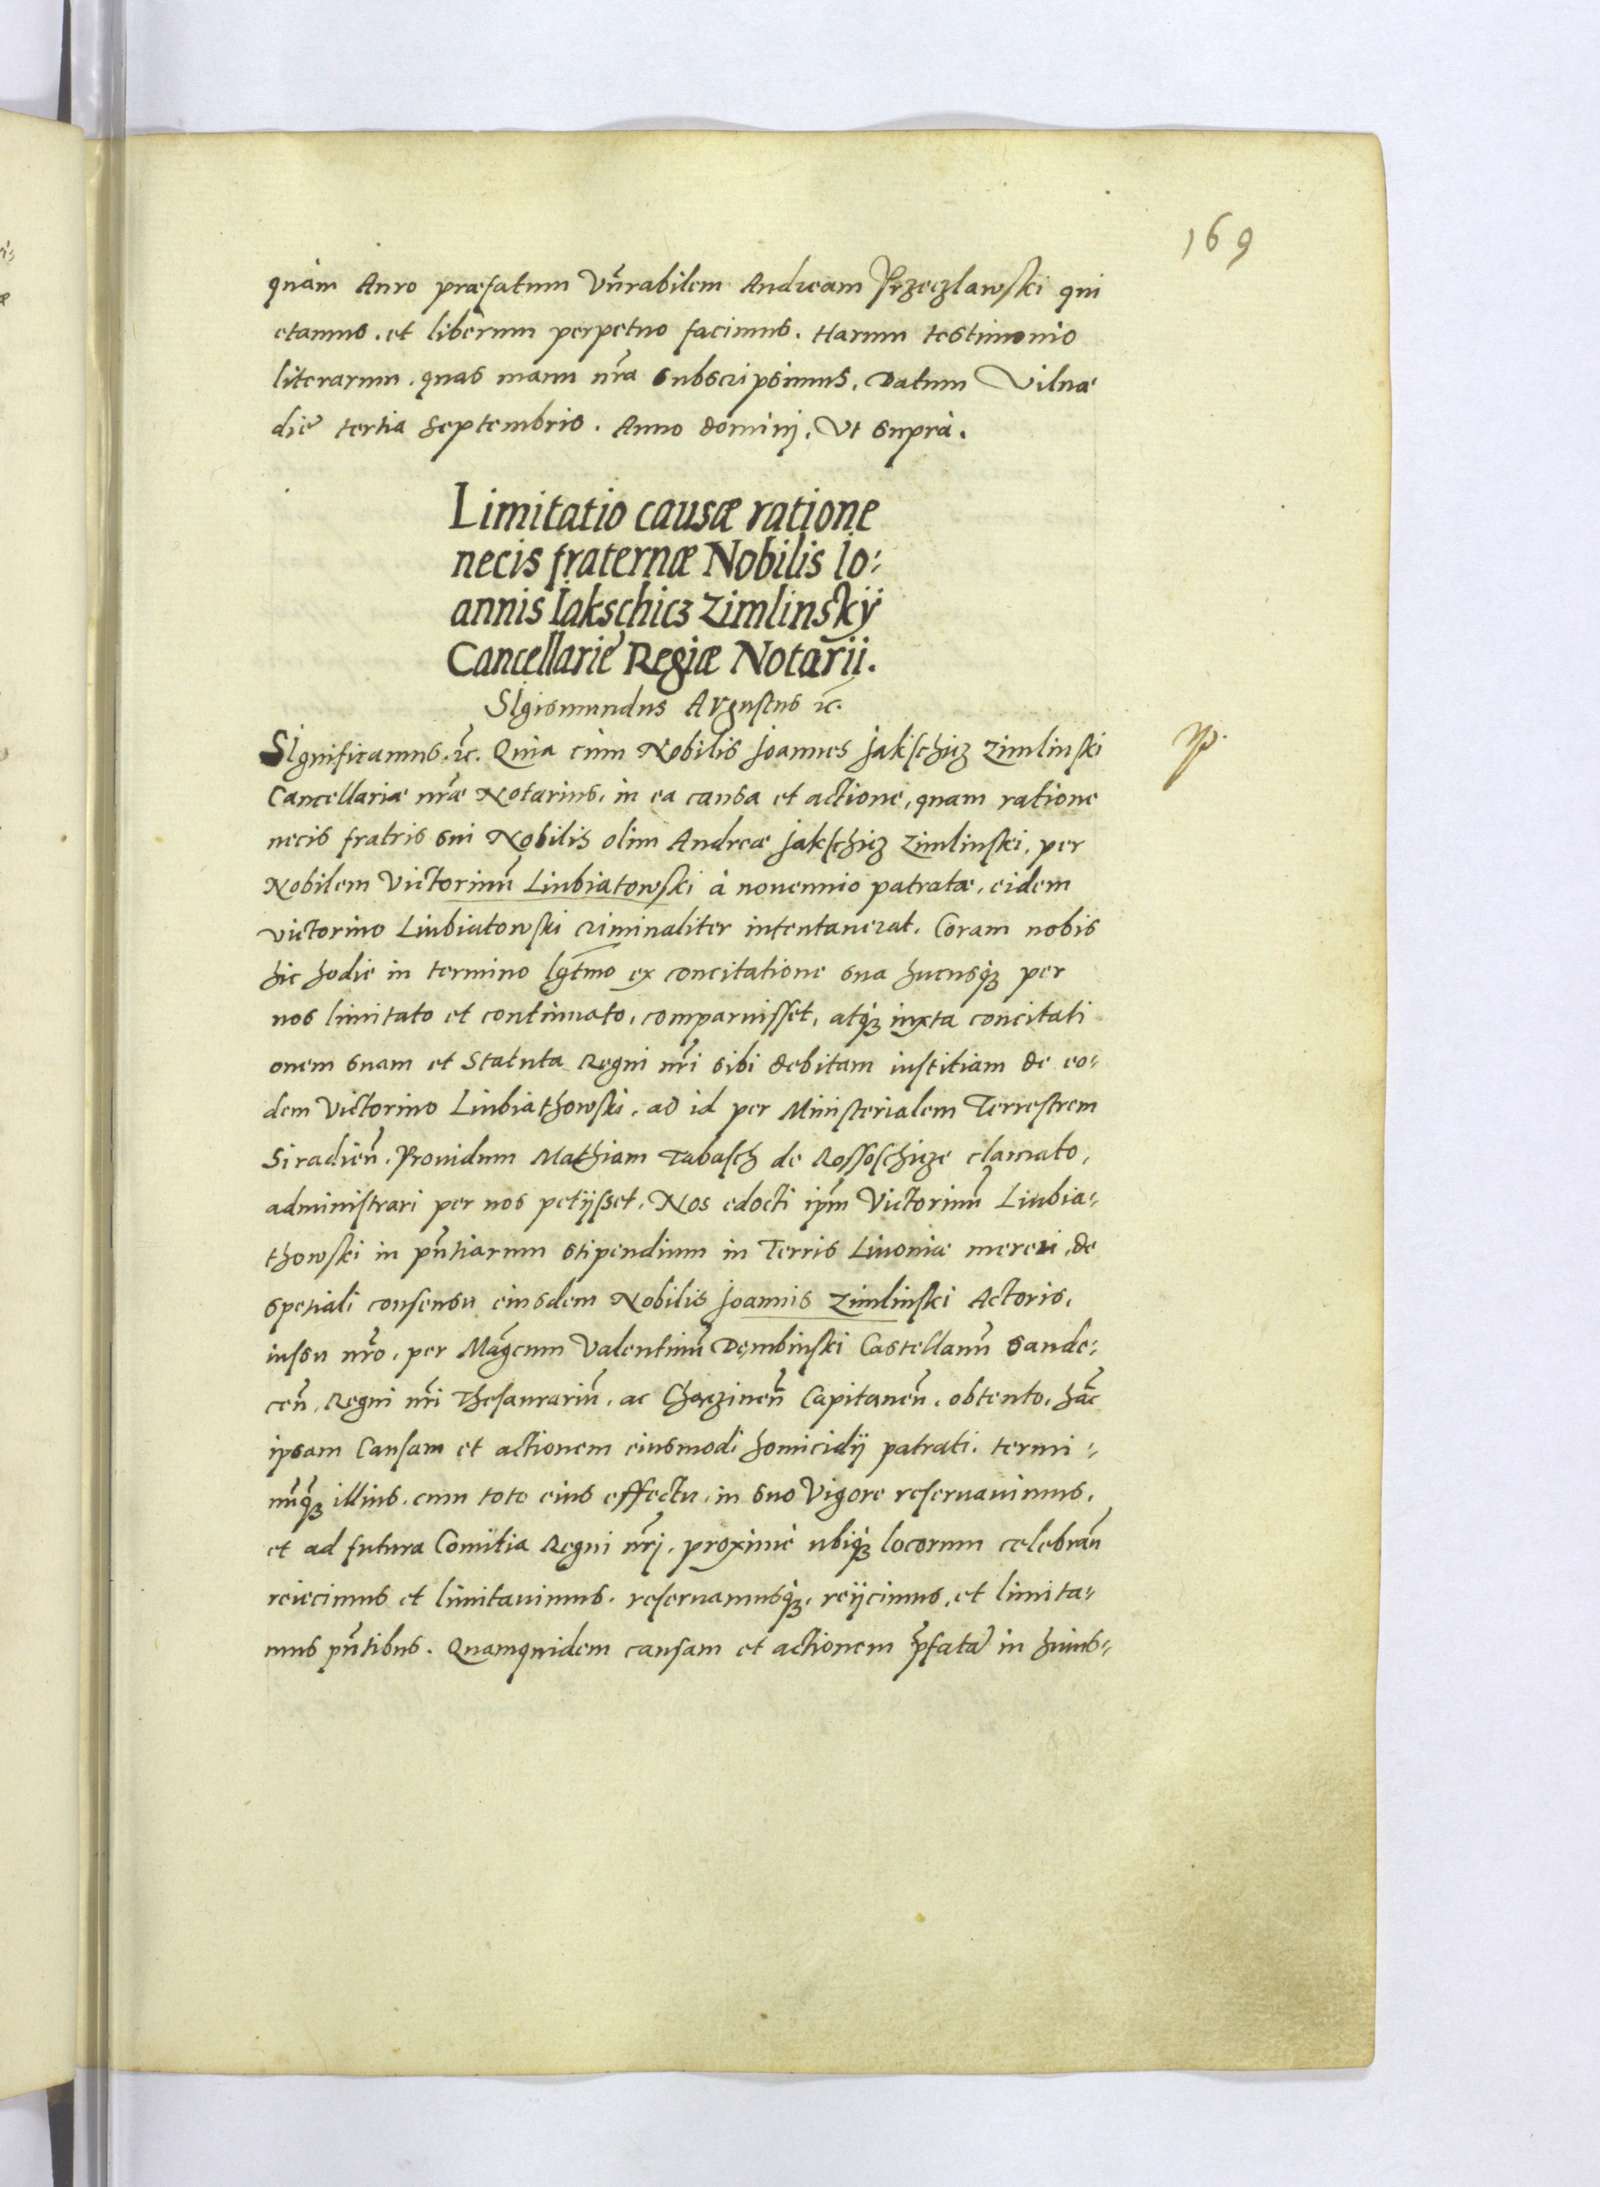 169
quàm Auro præfatum Vn̄rabilem Andream Przeczlawski qui
etamus. et liberum perpetuo facimus. Harum testimonio
literarum. quas manu nr̄a subscripsimus. Datum Vilnæ
die tertia Septembris. Anno dominj. Vt suprà.
Limitatio causæ ratione
necis fraternæ Nobilis Io:
annis Iakschicz Zimlinskÿ
Cancellarie Regiæ Notarii.
SIgismundus AVgustus ꝛc.
SIgnificamus. ꝛc. Quia cùm Nobilis Joannes Jakschicz Zimlinski
Cancellariæ nr̄æ Notarius. in ea causa et actione, quam ratione
necis fratris sui Nobilis olim Andreæ Jakschicz Zimlinski, per
Nobilem Victorinū Liubiatowski à nouennio patratæ, eidem
Victorino Liubiatowski criminaliter intentauerat. Coram nobis
hic hodie in termino lgt̄mo ex concitatione sua hucusq̨ per
nos limitato et continuato, comparuisset, atq̨ iuxta concitati
onem suam et Statuta Regni nr̄i sibi debitam iustitiam de eo:
dem Victorino Liubiathowski. ad id per Ministerialem Terrestrem
Siradien̄. Prouidum Mathiam Tabasch de Rossoschicze clamato,
administrari per nos petijsset. Nos edocti ip̄m Victorinū Liubia:
thowski in pn̄tiarum stipendium in Terris Liuoniæ mereri, de
spetiali consensu eiusdem Nobilis Joannis Zimlinski Actoris,
iussu nr̄o. per Mag̅cum Valentinū Dembinski Castellanū Sande:
cen̄. Regni nr̄i Thesaurariū. ac Chęczinen̄ Capitaneū. obtento, hāc
ipsam Causam et actionem eiusmodi homicidij patrati. termi:
nūq̨ illius. cum toto eius effectu. in suo Vigore reseruauimus.
et ad futura Comitia Regni nr̄j. proximè ubiq̨ locorum celebran̄
reiecimus et limitauimus. reseruamusq̨. reijcimus. et limita:
mus pn̄tibus. Quamquidem causam et actionem p̄fatā in huius: